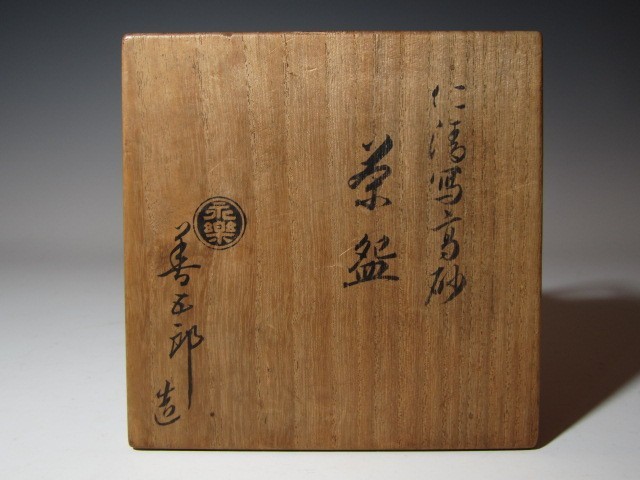 仁清写高砂
茶盌
永樂
善五郎
造